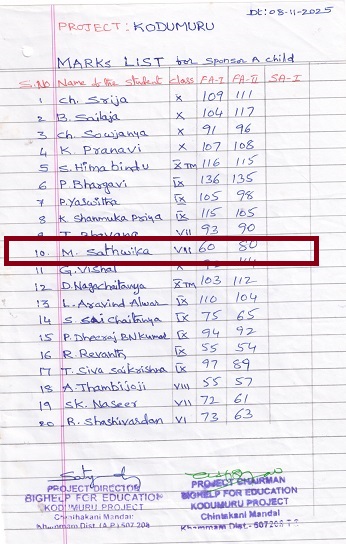 Dt: 08-11-2025
PROJECT: KODUMURU
MARKS LIST for Sponsor A child
S.No Name of the student class FA-I FA-II SA-I
1 Ch. Srija X 109 111
2 B. Sailaja X 104 117
3 Ch. Sowjanya X 91 96
4 K. Pranavi X 107 108
5 S. Hima bindu X TM 116 115
6 P. Bhargavi IX 136 135
7 P. Yaswitha IX 105 98
8 K Shanmuka Priya IX 115 105
9 T. Bhavana VII 93 90
10. M. Sathwika VII 60 80
11 G. Vishal X
12 D. Nagachaitanya X TM 103 112
13 L. Aravind Alwar IX 110 104
14 S Sai Chaitanya IX 75 65
15 P. Dheeraj B.N Kumar IX 94 92
16 R. Revanth IX 55 54
17 T. Siva Saikrishna IX 97 89
18 A. Thambijoji VIII 55 57
19 SK. Naseer VII 72 61
20 R. Shashivardan VI 73 63
PROJECT DIRECTOR
BIGHELP FOR EDUCATION
KODUMURU PROJECT
Chinthakani Mandal
Khammam Dist. (A.P.) 507 208
PROJECT CHAIRMAN
BIGHELP FOR EDUCATION
KODUMURU PROJECT
Chintakani Mandal
Khammam Dist.- 507208